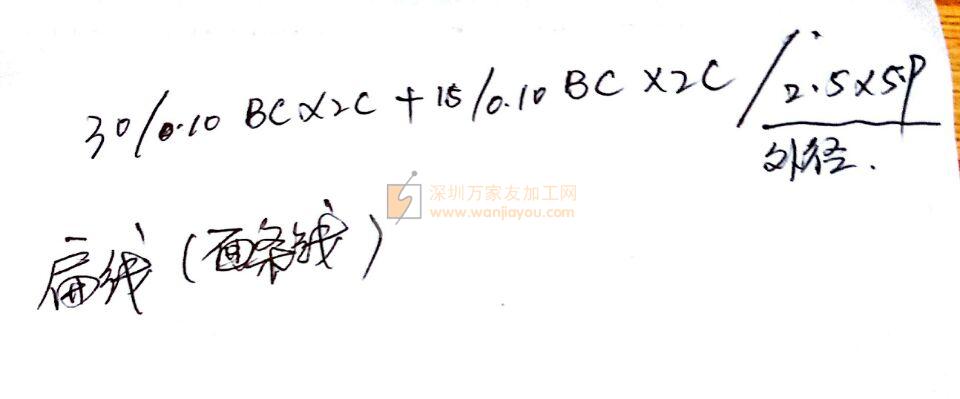 30/0.10 BC×2C + 15/0.10 BC ×2C / 2.5×5.9
外径.
深圳万家友加工网
www.wanjiayou.com
扁线(面条线)